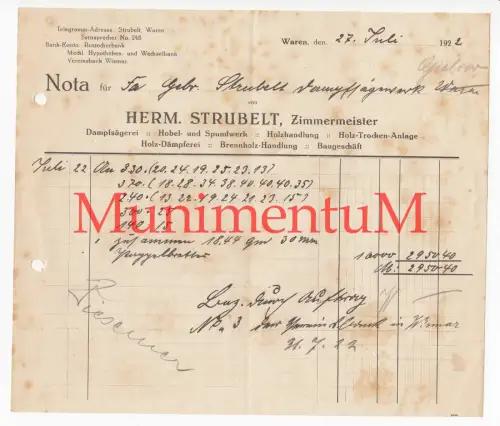 Telegramm-Adresse: Strubelt, Waren
Fernsprecher No. 248
Bank-Konto: Rostocker bank
Meckl. Hypotheken- und Wechselbank
Vereinsbank Wismar.
Waren, den 27. Juli 1922
Nota für Fa Gebr. Strubelt Dampfsägewerk
von
HERM. STRUBELT, Zimmermeister
Dampfsägerei :: Hobel- und Spundwerk :: Holzhandlung :: Holz-Trocken-Anlage
Holz-Dämpferei :: Brennholz-Handlung :: Baugeschäft
Juli 22 An 330.(20.24.19.25.23.13)
370.(18.28.34.38.40.40.40.35)
240.(13.22.19.24.21.23.15)
MunimentuM
zusammen 18.44 qm 30 mm
2950-40
M: 2950-40
No. 3 der Vereinsbank in Wismar
31.7.22